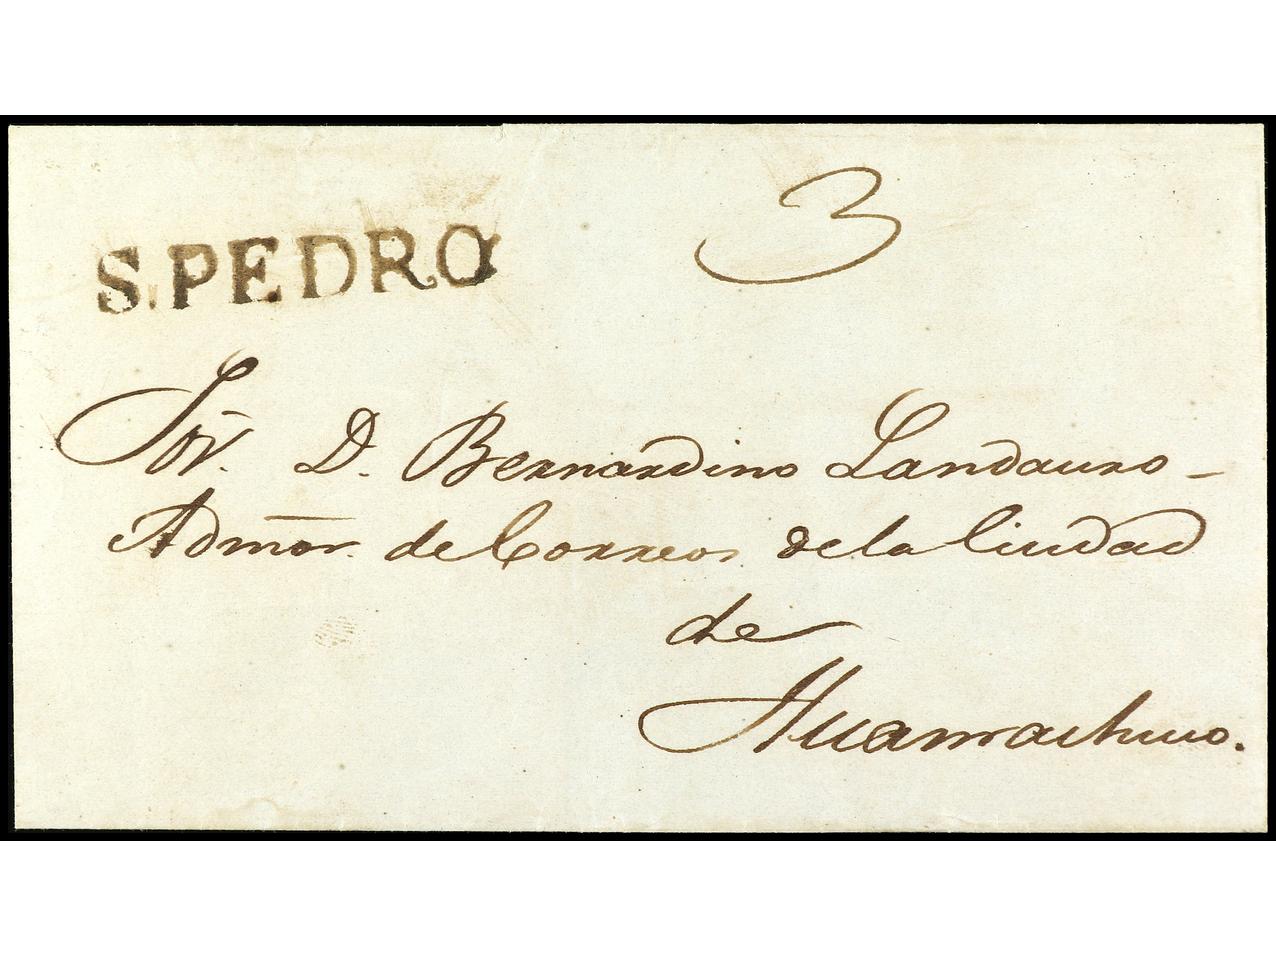 S. PEDRO
3
Sõr. D. Bernardino Landauro -
Admõr. de Correos de la Ciudad
de
Huamachuco.